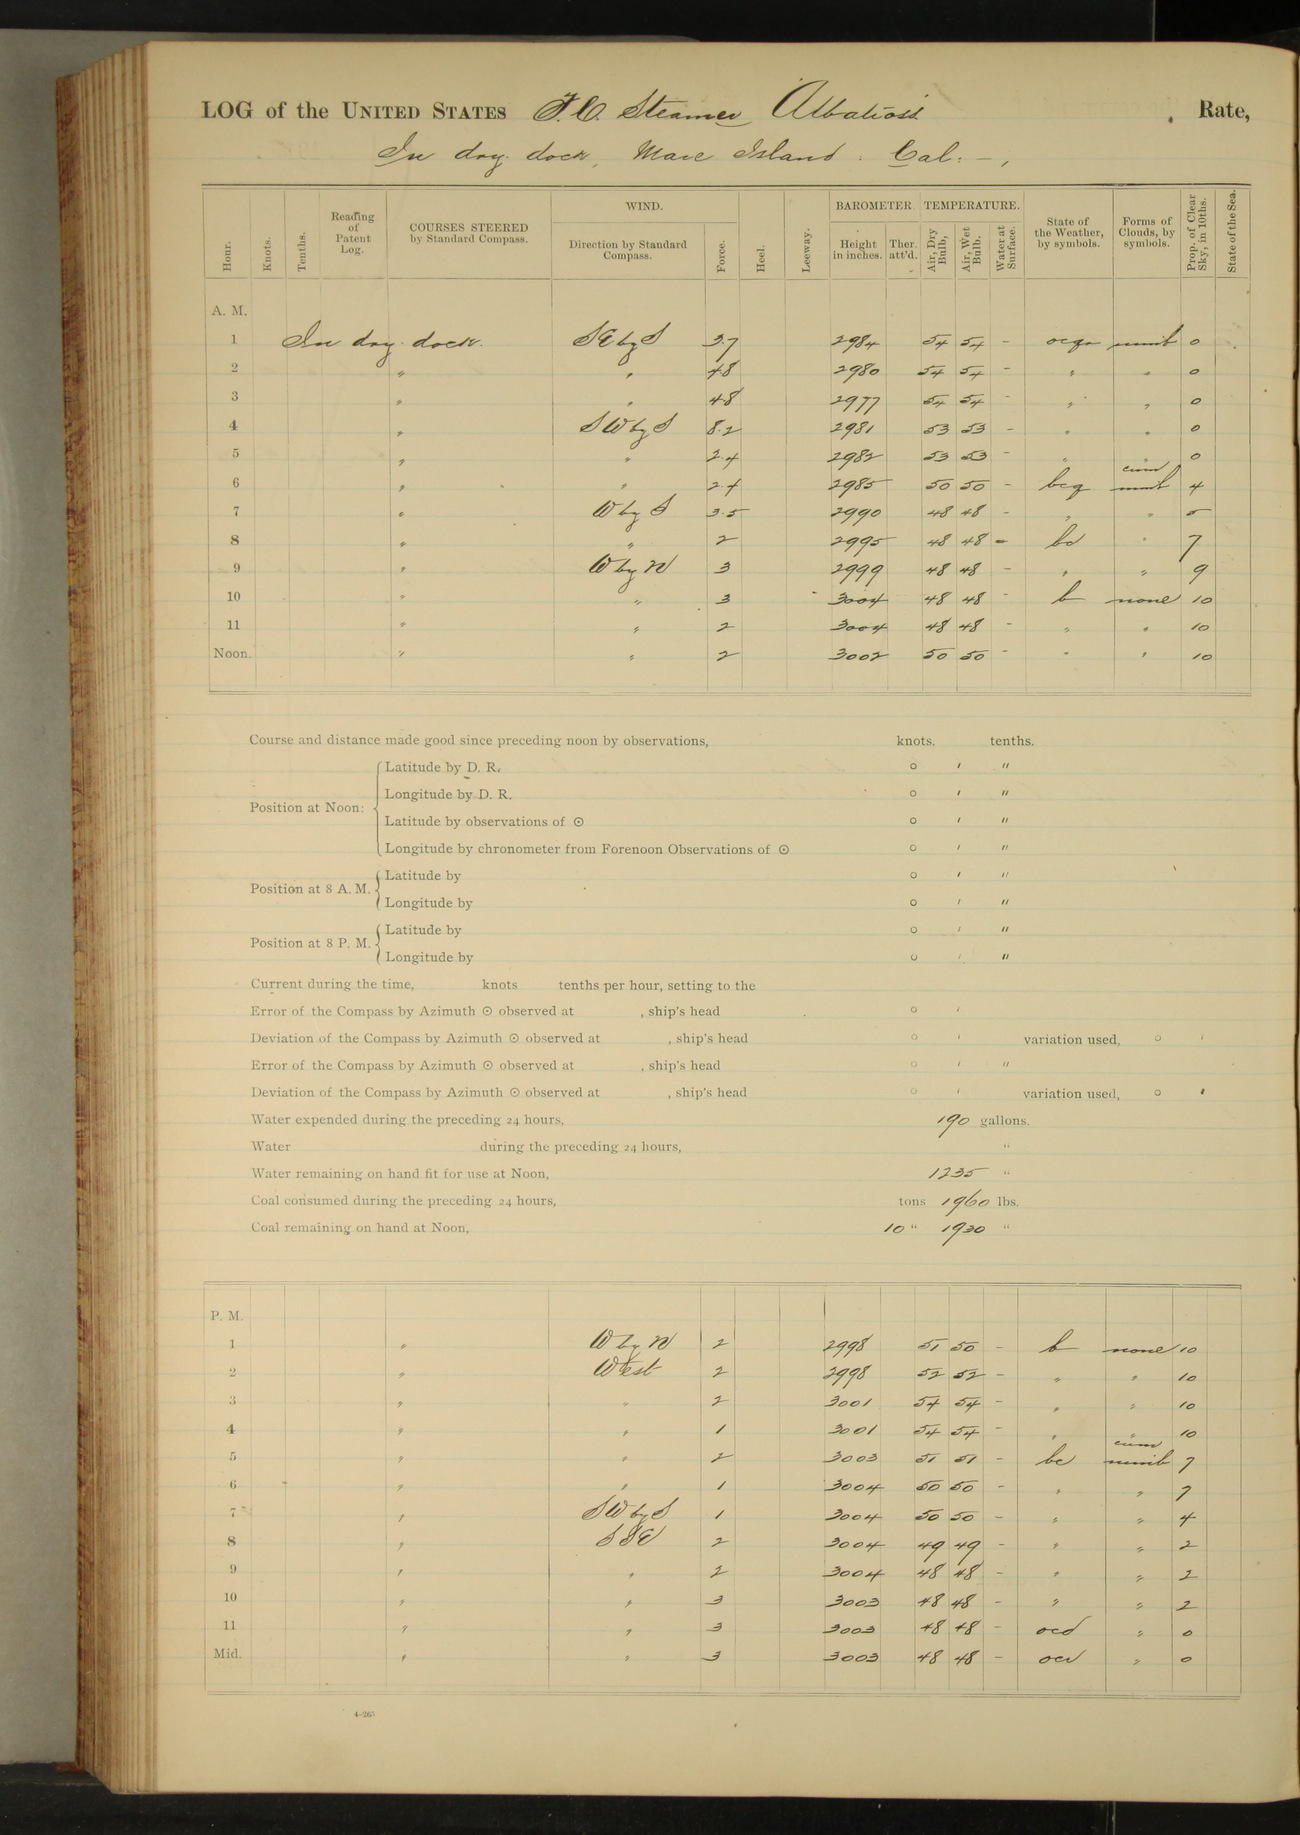 LOG of the UNITED STATES F.C. Steamer Albatross Rate,
In dry dock, Mare Island. Cal. —,
Hour. Knots. Tenths. Reading of Patent Log. COURSES STEERED by Standard Compass. WIND. Direction by Standard Compass. Force. Heel. Leeway. BAROMETER. Height in inches. Ther. att'd. TEMPERATURE. Air, Dry Bulb, Air, Wet Bulb. Water at Surface. State of the Weather, by symbols. Forms of Clouds, by symbols. Prop. of Clear Sky, in 10ths. State of the Sea.
A. M.
1 In dry dock. SE by S 3.7 2984 54 54 - nimb 0
2 " " 4.8 2980 54 54 - " " 0
3 " " 4.8 2977 54 54 - " " 0
4 " SW by S 8.2 2981 53 53 - " " 0
5 " " 2.4 2982 53 53 - " " 0
6 " " 2.4 2985 50 50 - bcq cum nimb 4
7 " W by S 3.5 2990 48 48 - " " 5
8 " " 2 2995 48 48 - bc " 7
9 " W by N 3 2999 48 48 - " " 9
10 " " 3 3004 48 48 - b none 10
11 " " 2 3004 48 48 - " " 10
Noon. " " 2 3002 50 50 - " " 10
Course and distance made good since preceding noon by observations, knots. tenths.
Position at Noon:
Latitude by D. R. ° ′ ″
Longitude by D. R. ° ′ ″
Latitude by observations of ☉ ° ′ ″
Longitude by chronometer from Forenoon Observations of ☉ ° ′ ″
Position at 8 A. M.
Latitude by ° ′ ″
Longitude by ° ′ ″
Position at 8 P. M.
Latitude by ° ′ ″
Longitude by ° ′ ″
Current during the time, knots tenths per hour, setting to the
Error of the Compass by Azimuth ☉ observed at , ship's head ° ′
Deviation of the Compass by Azimuth ☉ observed at , ship's head ° ′ variation used, ° ′
Error of the Compass by Azimuth ☉ observed at , ship's head ° ′ ″
Deviation of the Compass by Azimuth ☉ observed at , ship's head ° ′ variation used, ° ′
Water expended during the preceding 24 hours, 190 gallons.
Water during the preceding 24 hours, "
Water remaining on hand fit for use at Noon, 1235 "
Coal consumed during the preceding 24 hours, tons 1960 lbs.
Coal remaining on hand at Noon, 10 " 1930 "
P. M.
1 " W by N 2 2998 51 50 - b none 10
2 " West 2 2998 52 52 - " " 10
3 " " 2 3001 54 54 - " " 10
4 " " 1 3001 54 54 - " " 10
5 " " 2 3003 51 51 - bc cum nimb 7
6 " " 1 3004 50 50 - " " 7
7 " SW by S 1 3004 50 50 - " " 4
8 " SSE 2 3004 49 49 - " " 2
9 " " 2 3004 48 48 - " " 2
10 " " 3 3003 48 48 - " " 2
11 " " 3 3003 48 48 - ocd " 0
Mid. " " 3 3003 48 48 - " 0
4-265